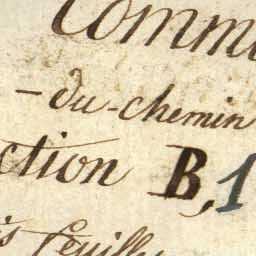 Commu
- du - chemin
ction B, 1
is feuille